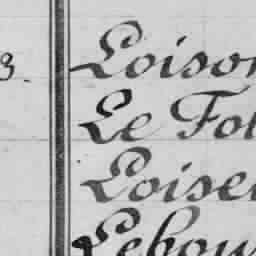 3
Loison
Le Fol
Loisel
Lebou